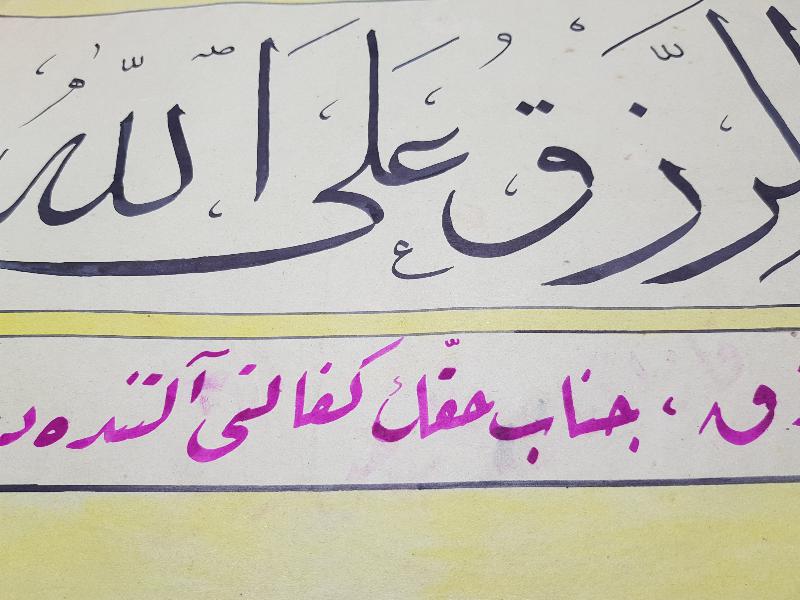 الرِّزْقُ عَلَى اللّٰهُ
رزق، جناب حقّك كفالتى آلتنده در